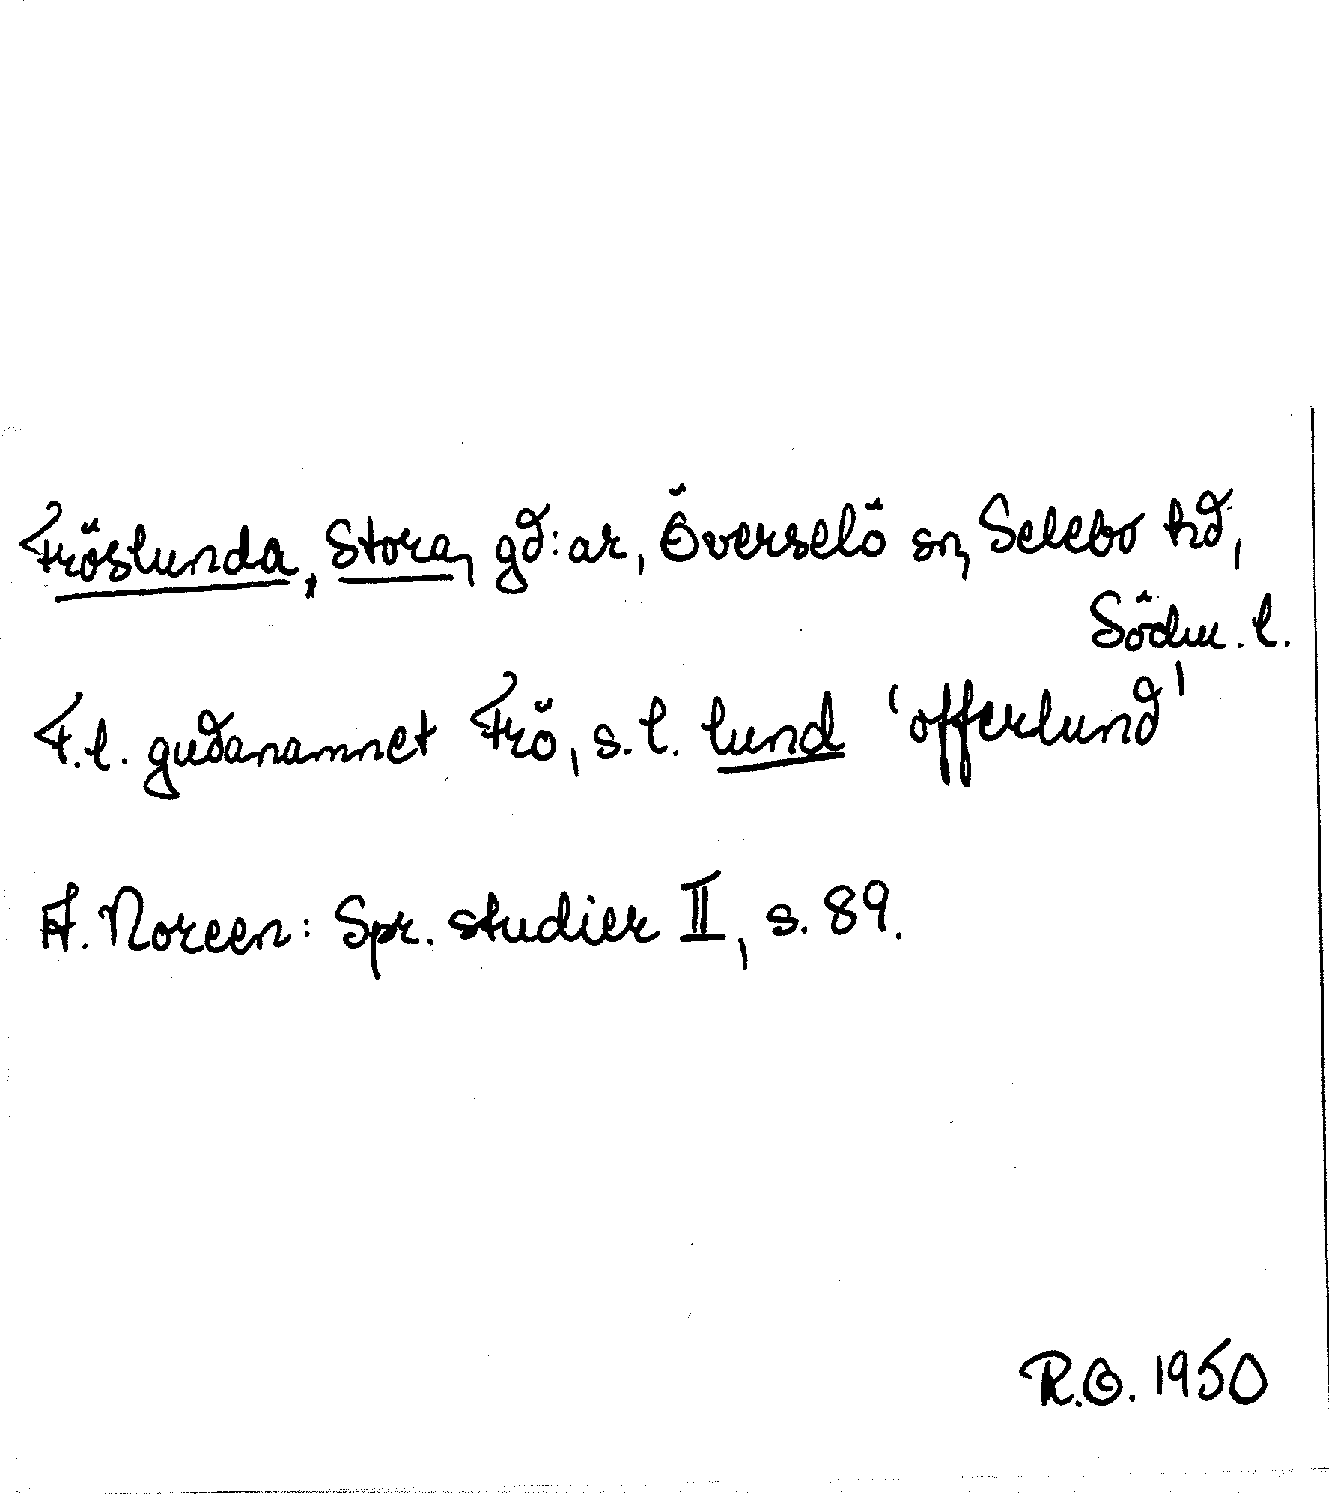 Fröslunda, Stora, gd:ar, Överselö sn, Selebo hd,
Södm. l.
F.l. gudanamnet Frö, s.l. lund 'offerlund'
A. Noreen: Spr. studier II, s. 89.
R.O. 1950